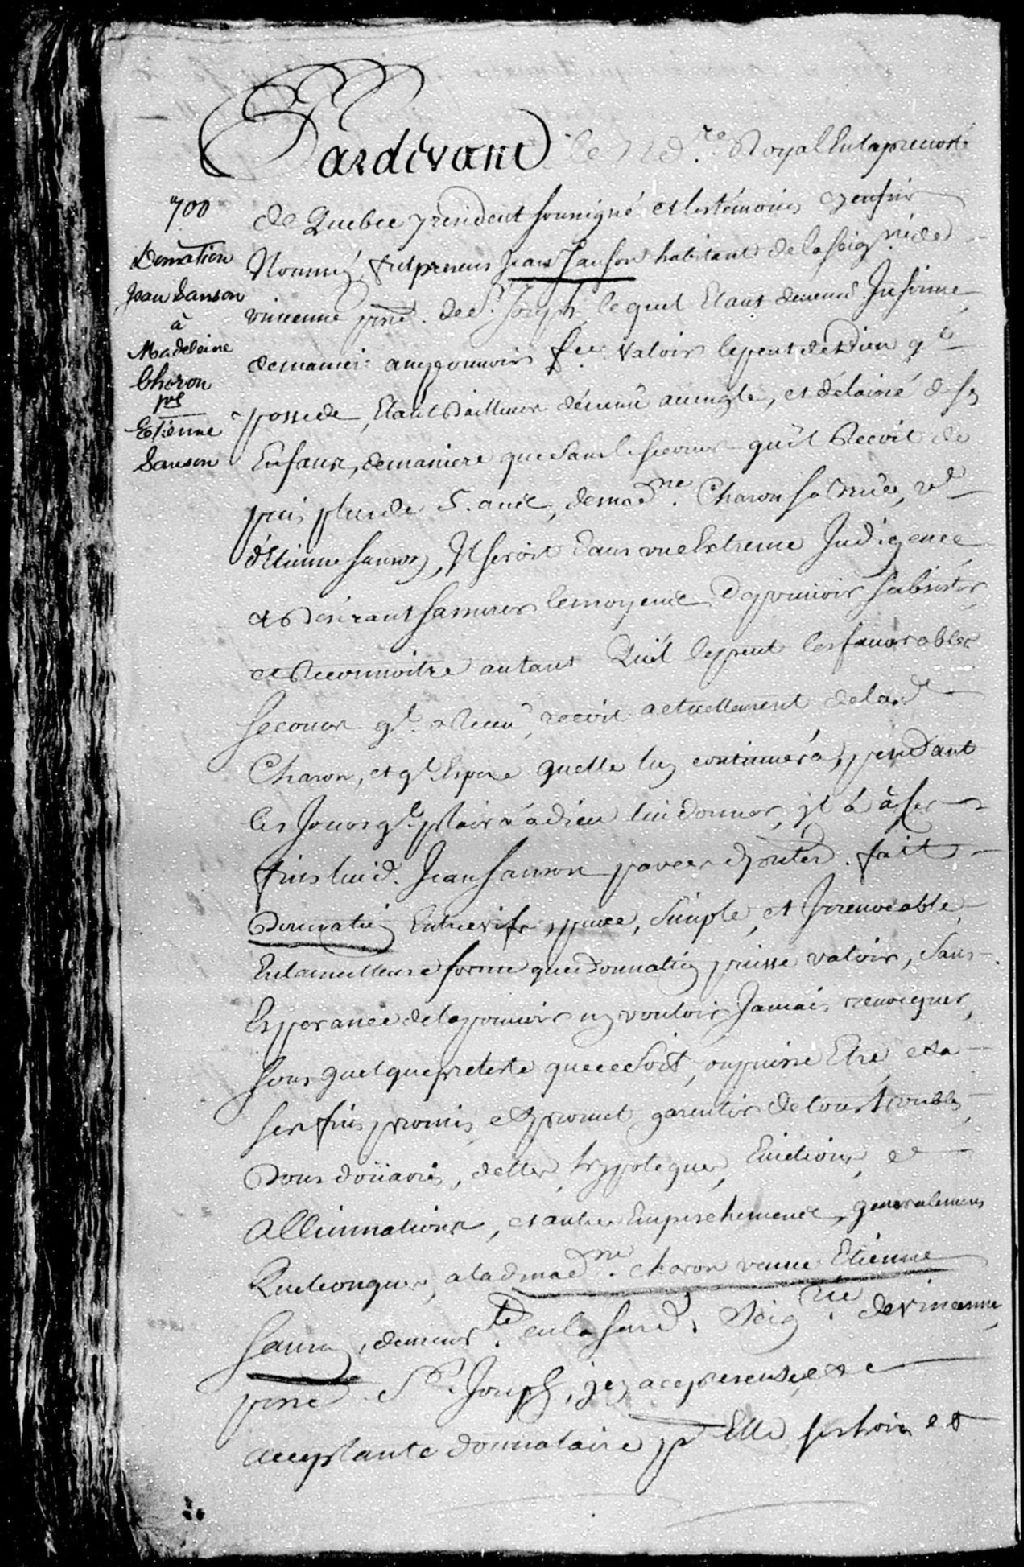 Pardevant le No.re Royal En la prevosté
700
Donation
Jean Sanson
à
Madeleine
Choron
vve
Etienne
Sanson
de Quebec y resident soussigné et les témoins cy enfin
Nommés, fut present Jean Sanson habitant de la seig.rie de
vincenne psse. de St. Joseph lequel Etant devenu Infirme
de maniere a ne pouvoir fre. valoir le peut de bien q.il
possede, Etant D'ailleurs devenu aveugle, et délaissé de ses
Enfans, de maniere que sans le secours qu'il Recoit de
puis plus de 5. ans, de mad.ne Charon sa bru, ve.
d'Etienne Sanson, Il seroit dans une Extreme Indigence
et Desirant s'assurer les moyens de pouvoir subsister,
et Reconnoitre autant Qu'il le peut les favorables
secours q.l a Recu, recoit actuellement de lad.e
Charon, et q.l Espere quelle luy continuera, pendant
les Jours q.l plaira à dieu lui donner, il à à ces
fins luid. Jean Sanson par ces presentes fait
Donnation Entrevifs, pure, simple, et Irrevocable,
En la meilleure forme que Donnation puisse valoir, sans
Esperance de la pouvoir ny vouloir Jamais revocquer,
sous quelque pretexte que ce soit, ou puisse Etre, et a
ses fins promis et promet garentir de tous troubles,
Dons doüaires, dettes, hypoteques, Evictions, et
Alliennations, et autres Empeschements generalement
Quelconques, a lad mad.ne charon veuve Etienne
Sanson, demeur.te en la sused. Seig.rie de vincenne,
psse St. Joseph, icy acce presente et
acceptante donnataire pr Elle ses hoirs et